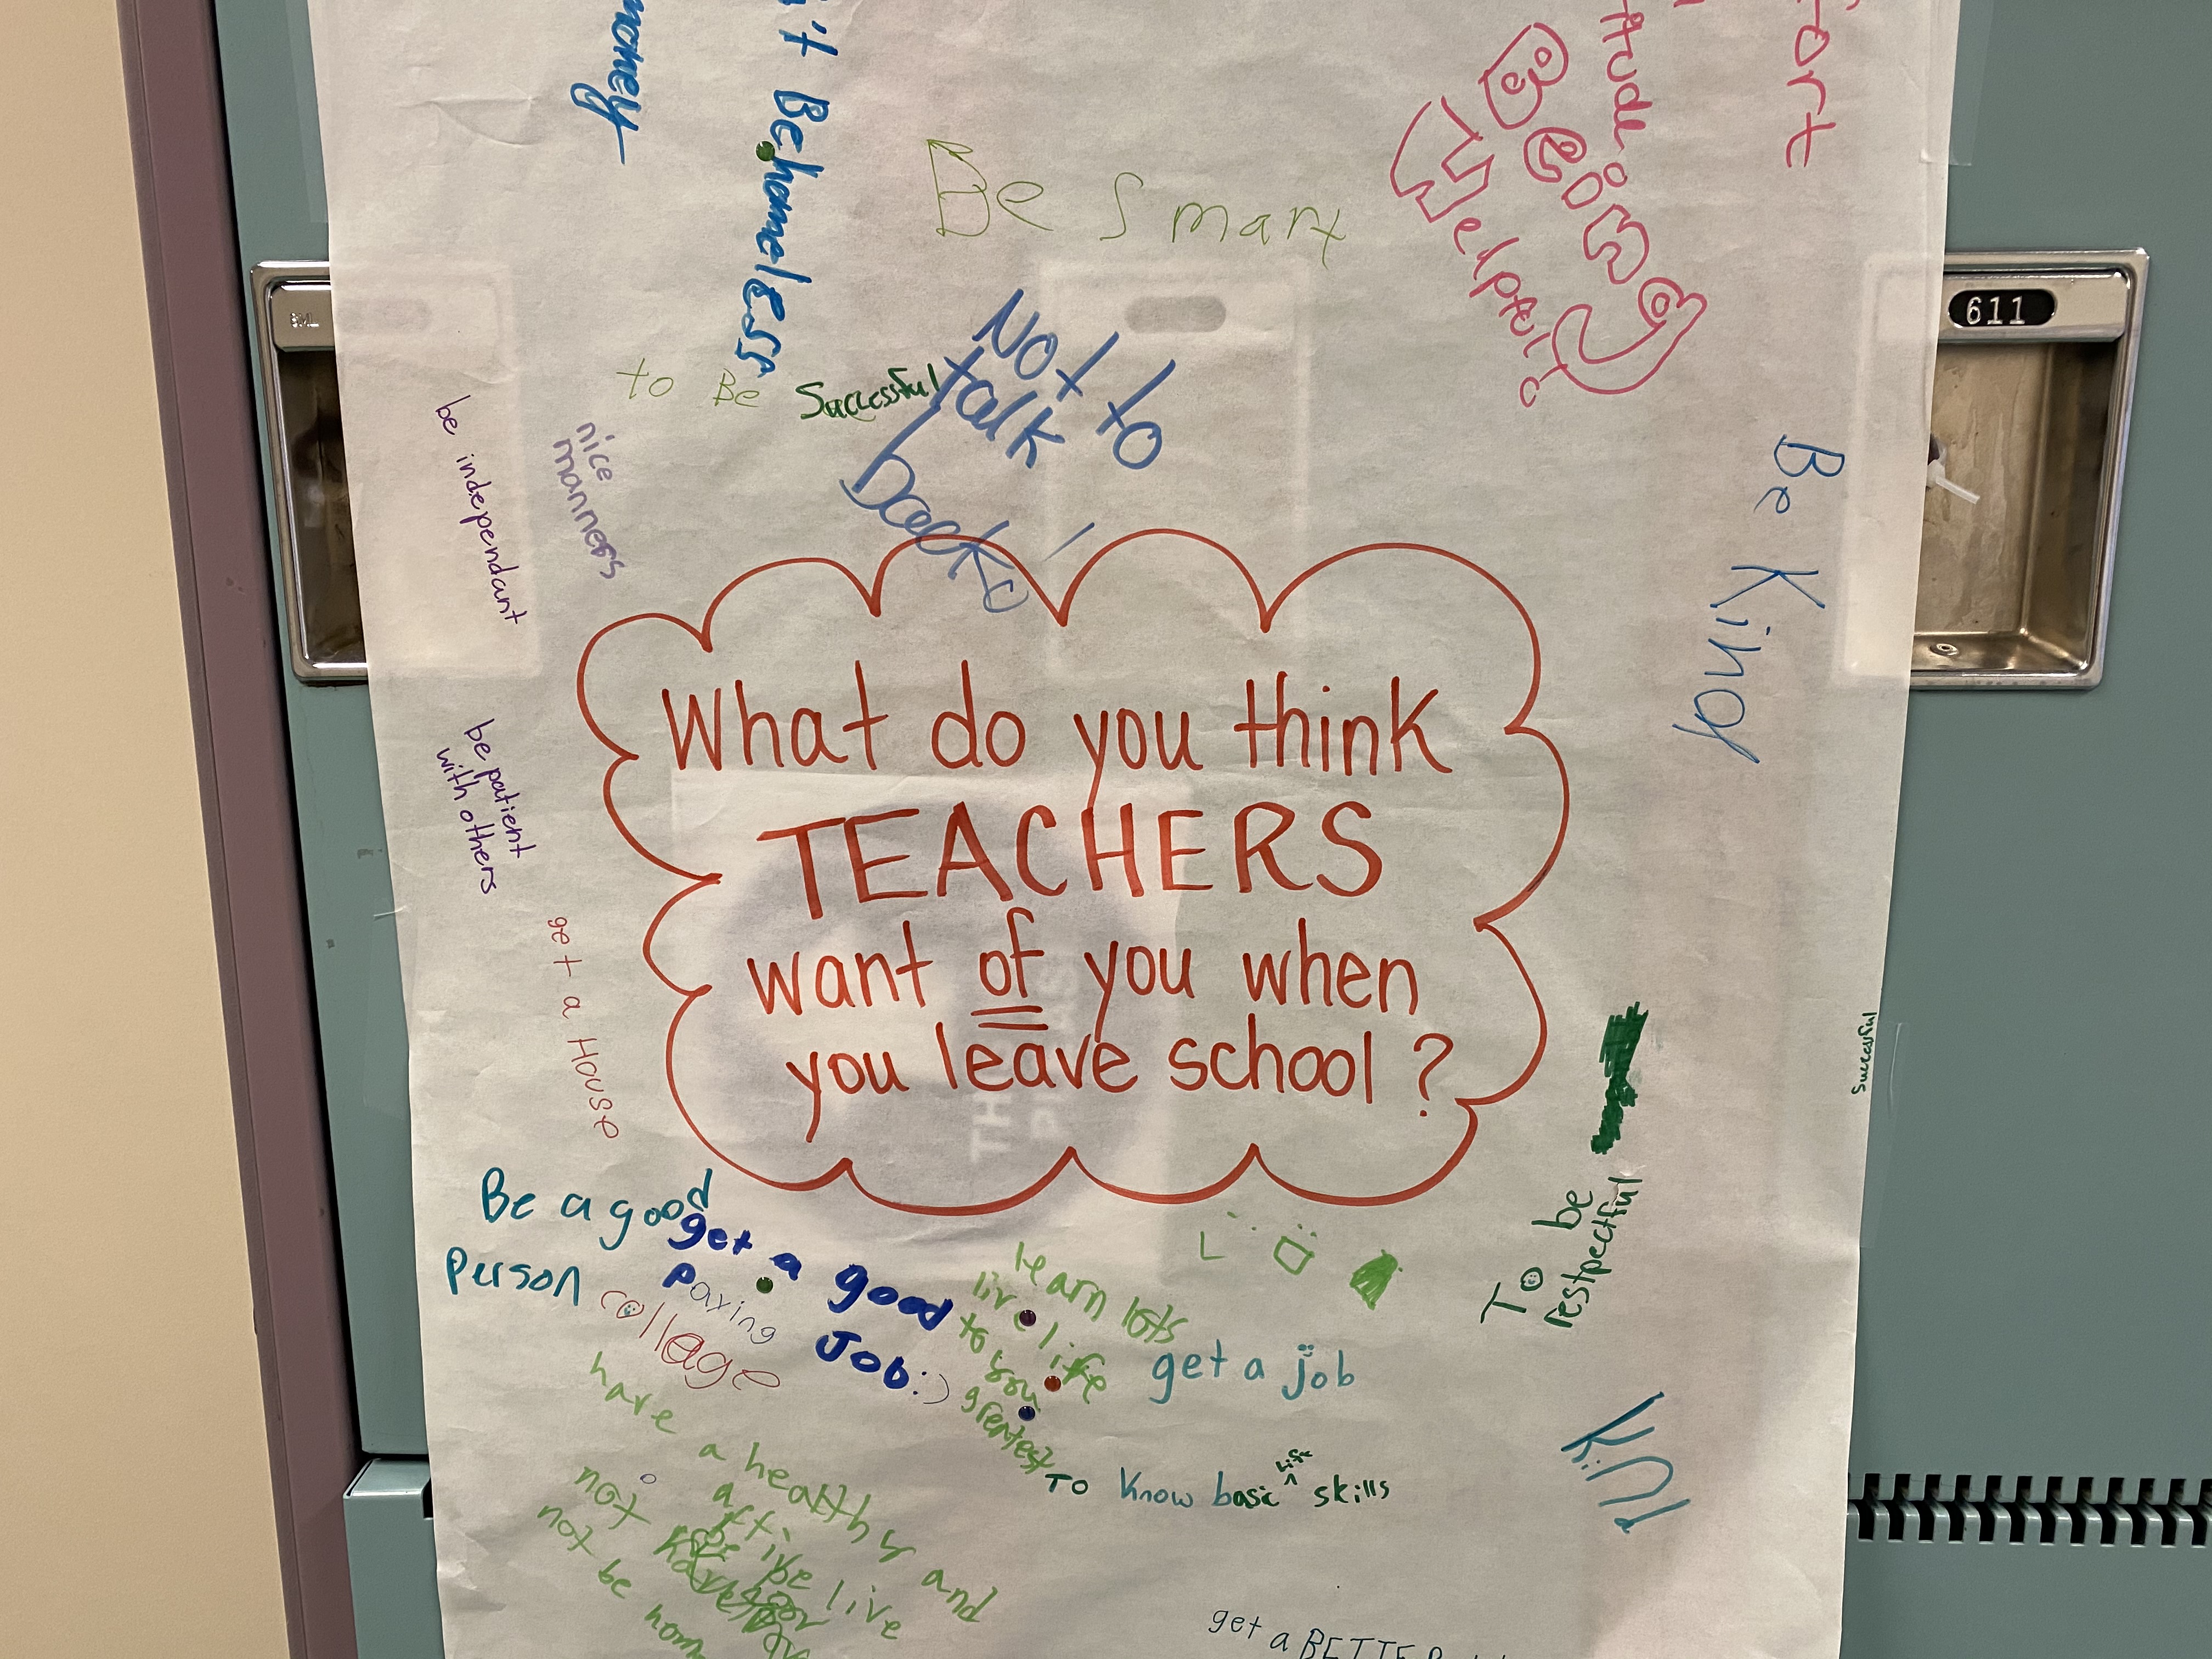 money
't Be homeless
ort
Being
Helpful
Be Smart
611
to Be Successful
Not to
talk
back
be independant
nice
manners
Be Kind
What do you think
TEACHERS
want of you when
you leave school?
be patient
with others
get a House
Successful
To be
restpectful
Be a good
Person
get a good
paying
Job:)
collage
learn lots
live life
to your
greatest
get a job
To Know basic life skills
Kind
have a healthy and
active live
not be
not be hom
get a BETTER